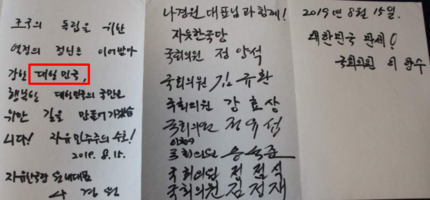 조국의 독립을 위한
열정의 정신을 이어받아
강한 대일민국,
행복한 대한민국의 국민을
위한 길을 만들어가겠습
니다! 자유민주주의 수호!
2019. 8. 15.
자유한국당 원내대표
나경원
나경원 대표님과 함께!
자유한국당
국회의원 정양석
국회의원 김규환
국회의원 강효상
국회의원
국회의원 송석준
국회의원 정점식
국회의원 김정재
2019년 8월 15일.
대한민국 만세!
국회의원 이만수